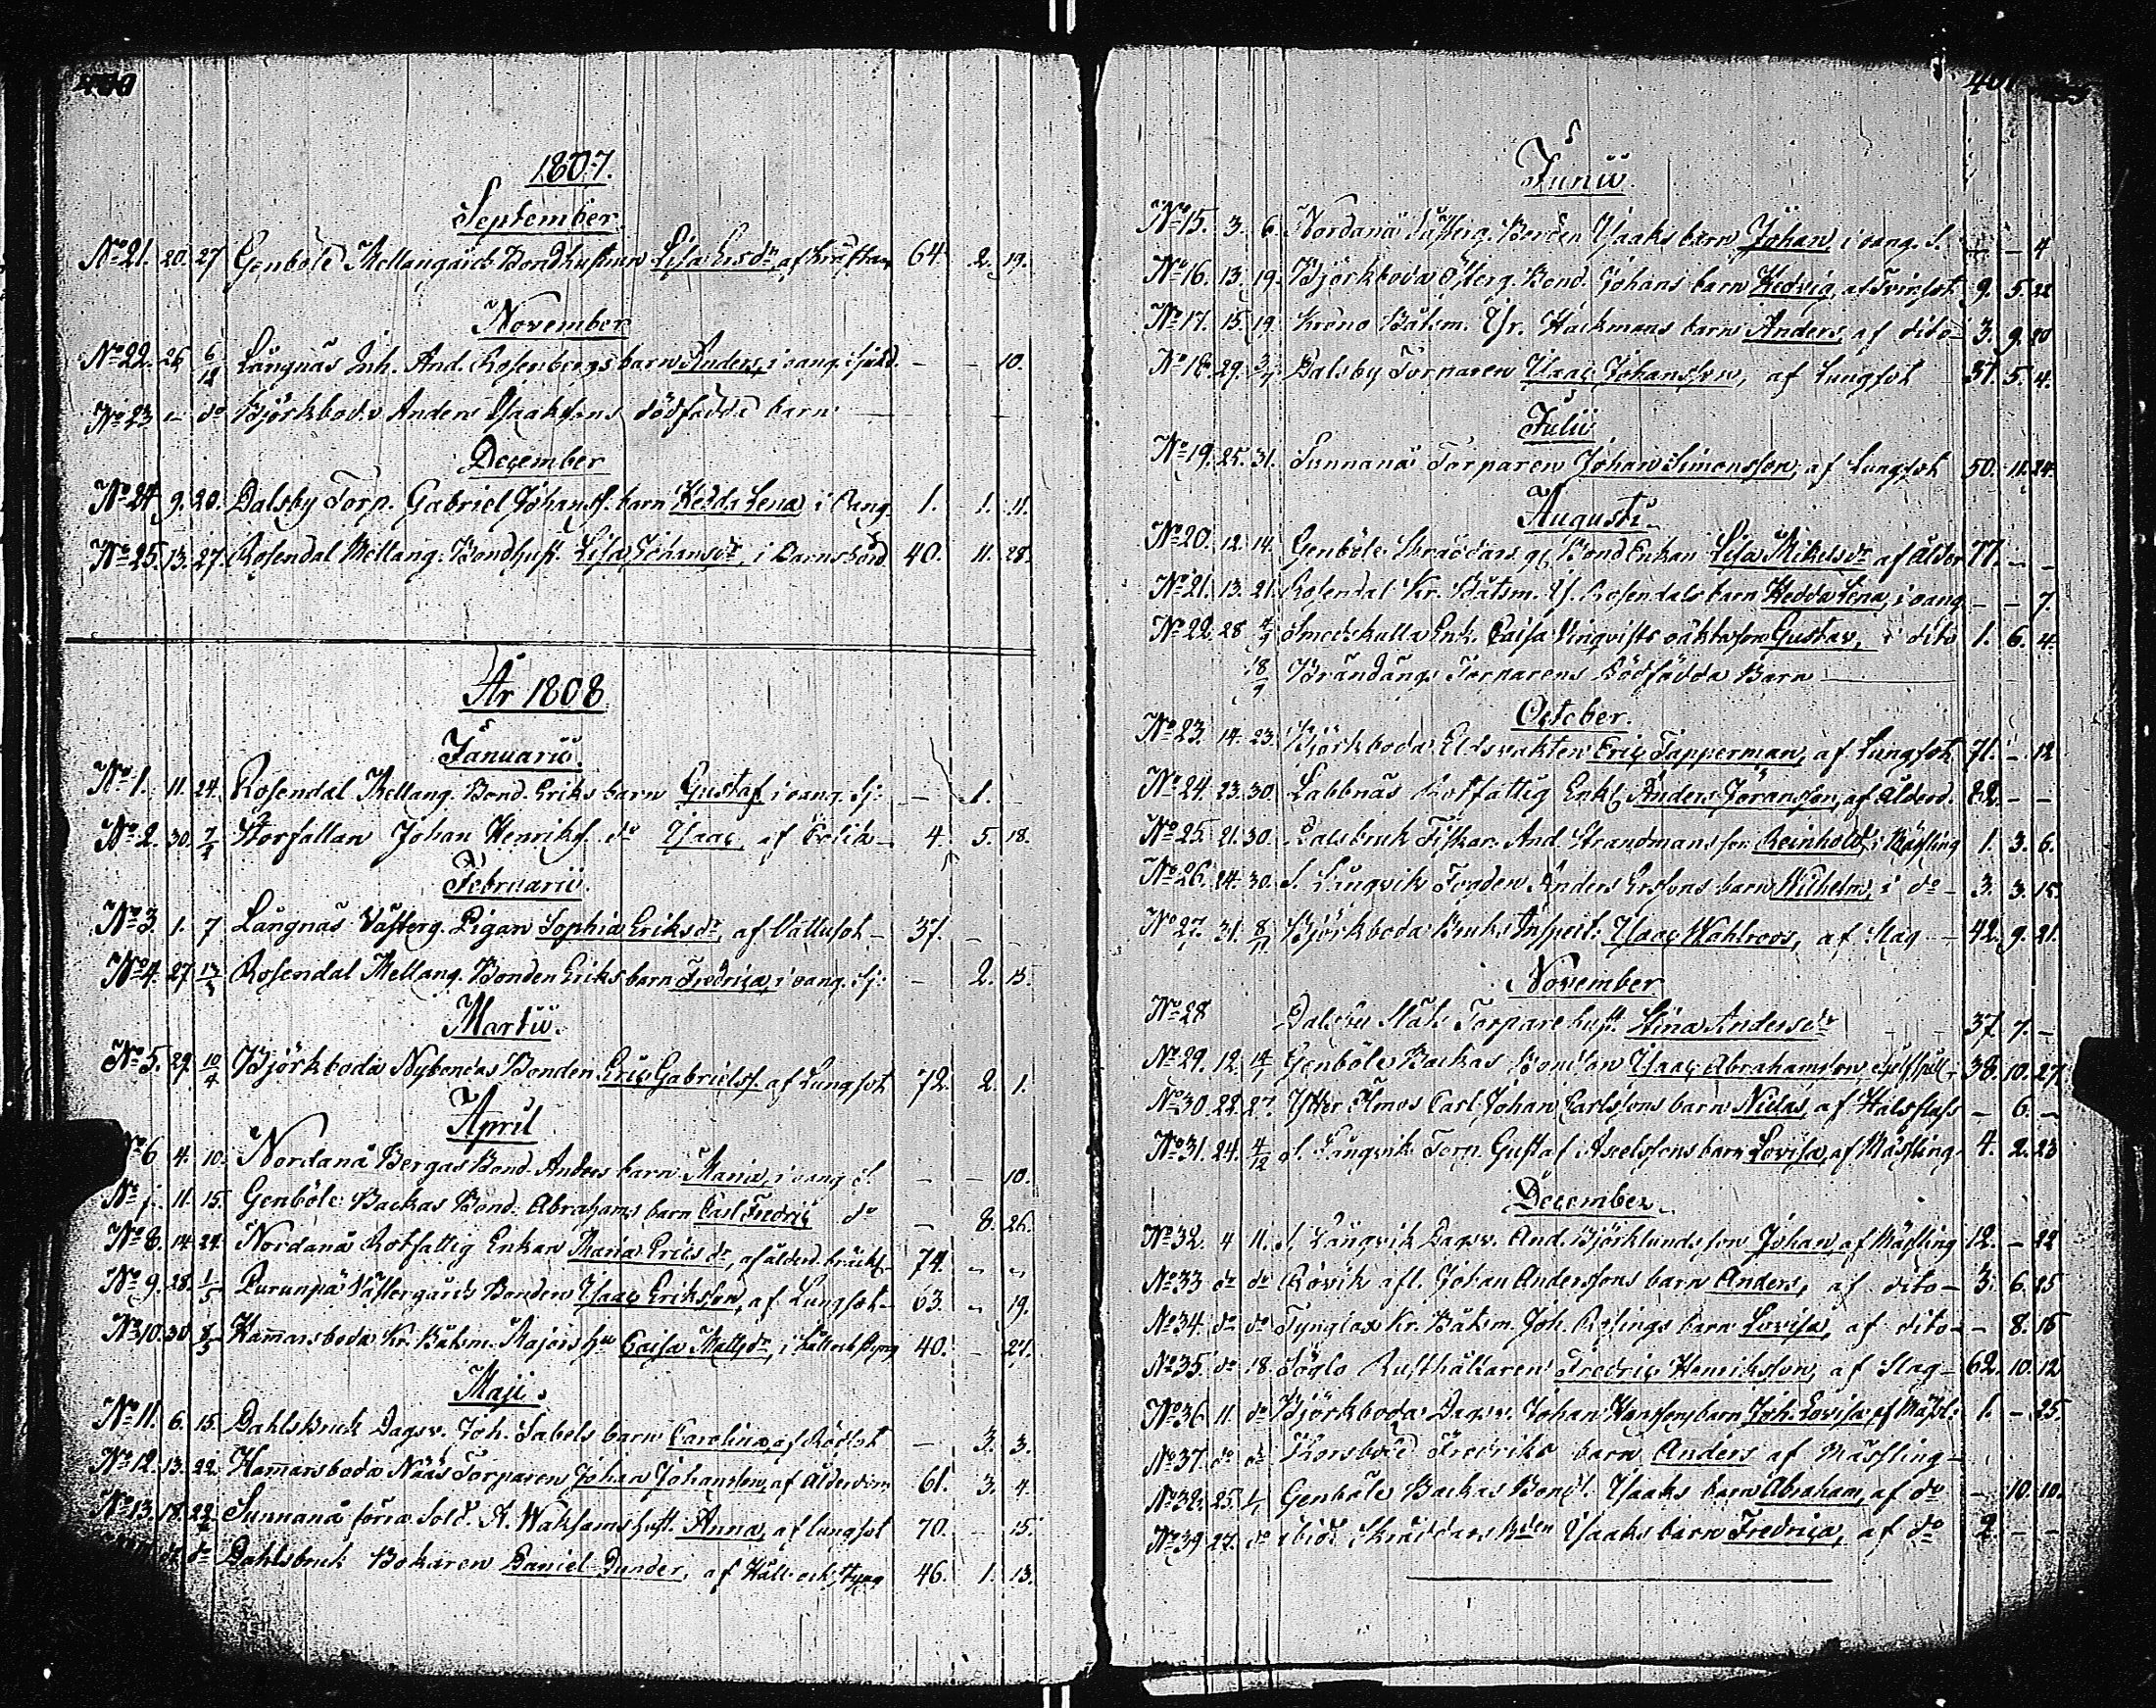 400
1807.
September.
No 21. 20. 27 Genböle Mellangårds Bondhustrun Lisa Ersdr, af kräftan 64. 2. 19.
November
No 22. 26 6/12 Långnäs Inh. And. Rosenbergs barn Anders, i oang. sjukd. – – 10.
No 23 – do Björkboda Anders Isaaksons dödfödde barn
December
No 24 9. 20. Dalsby Torp. Gabriel Johanss. barn Hedda Lena i oang. 1. 1. 11.
No 25. 13. 27. Rosendal Mellang. Bondhust. Lisa Johansdr, i Barnsbörd 40. 11. 28.
År 1808
Januarii.
No 1. 11. 24. Rosendal Mellang. Bond. Eriks barn Gustaf i oang. sj: – 1. –
No 2. 30. 7/2 Storfallan Johan Henriks. do Isaac af Colik – 4. 5. 18.
Februarii.
No 3. 1. 7 Långnäs Västerg. Pigan Sophia Eriksdr, af Vattusot – 37. – –
No 4. 27 13/3 Rosendal Mellang. Bonden Eriks barn Fredrica, i oang. sj: – 2. 15.
Martii.
No 5. 29. 10/4 Björkboda Nybondas Bonden Eric Gabrielss. af Lungsot 72. 2. 1.
April
No 6 4. 10. Nordanå Bergas Bond. Anders barn Maria, i oang. S. – – 10.
No 7. 11. 15. Genböle Backas Bond. Abrahams barn Carl Fredric do – 8. 26.
No 8. 14. 24. Nordanå Rotfattig Enkan Maria Ericsdr, af ålderd. bräckl. 74. – –
No 9. 28. 1/5 Purunpä Västergårds Bonden Isaac Eriksson, af Lungsot – 63. – 19.
No 10. 30 8/5 Hammarsboda Kr. Båtsm. Majors hu Caisa Mattsdr, i håll och styng 40. – 24.
Maji.
No 11. 6. 15. Dahlsbruk Dagsv. Joh. Sabels barn Carolina, af Rödsot – 3. 3.
No 12. 13. 22. Hammarsboda Nääs Torparen Johan Johansson, af Ålderdom 61. 3. 4.
No 13. 18. 22 Sunnanå förra Sold. A. Waksams hust. Anna, af lungsot 70. – 15.
do do Dahlsbruk Bokaren Daniel Dunder, af Håll och styng 46. 1. 13.
401
Junii.
No 15. 3. 6. Nordanå Västerg. Bonden Isaaks barn Johan, i oang. S. – – 4
No 16. 13. 19. Björkboda Österg. Bond. Johans barn Hedvig, af Tvinsot 9. 5. 22
No 17. 15. 19. Krono Båtsm. Hackmans barn Anders, af dito – 3. 9. 20
No 18. 29. 3/7 Dalsby Torparen Isaac Johansson, af Lungsot 37. 5. 4.
Julii
No 19. 25. 31. Sunnanå Torparen Johan Simonsson, af Lungsot 50. 11. 24.
Augusti.
No 20. 12. 14. Genböle Skräddars Bond Enkan Lisa Mikelsdr af ålder 77. – –
No 21. 13. 21. Rosendal Kr. Båtsm. Rosendals barn Hedda Lena, i oang – – 7.
No 22. 28 4/9 Smedskulla Enk. Caisa Vinqvists oäkta son Gustav, i dito 1. 6. 4.
18/9 Brändängs Torparens Dödfödda Barn
October.
No 23. 14. 23. Björkboda Eldsvakten Eric Tapperman, af Lungsot 71. – 12
No 24. 23. 30. Labbnäs Rotfattig Enkl. Anders Göransson, af ålderd. 82. – –
No 25. 21. 30. Dalsbruk Fiskar. And. Strandmans son Reinhold, i Mässling 1. 3. 6.
No 26. 24. 30. S. Långvik Fogden Anders Erssons barn Wilhelm, i do – 3. 3. 15.
No 27. 31. 8/11 Björkboda Bruks Inspect: Isaac Wahlroos, af slag – 42. 9. 21.
November
No 28 Torpare hust. Stina Andersdr 37 7. –
No 29. 12. 14 Genböle Backas Bonden Isaac Abrahamsson, 38. 10. 27
No 30. 22. 27. Ytter Ölmos Carl Johan Carlssons barn Niclas, af Halsfluss – 6. –
No 31. 24. 4/12 S. Långvik Torp. Gustaf Axelssons barn Lovisa, af Mässling 4. 2. 23
December.
No 32. 4 11. S. Långvik Dagsv. And. Björklunds son Johan, af Mässling 12. – 22
No 33 do do Rövik afl. Johan Anderssons barn Anders, af dito – 3. 6. 25
No 34. do do Tynglax Kr. Båtsm. Joh. Rosings barn Lovisa, af dito – – 8. 16
No 35. do 18. Söglo Rusthållaren Fredric Henriksson, af slag – 62. 10. 12
No 36. 11. do Björkboda Dagsv. Johan Hanssons barn Joh. Lovisa, af Mässl: 1. – 25.
No 37. do do Korsböle Fredriks barn Anders af Mässling –
No 38. 25. 1/1 Genböle Backas Bond. Isaaks barn Abraham, af do – 10. 10.
No 39. 27. do ibid. Skräddars Bden Isaaks barn Fredrica, af do 2. – –